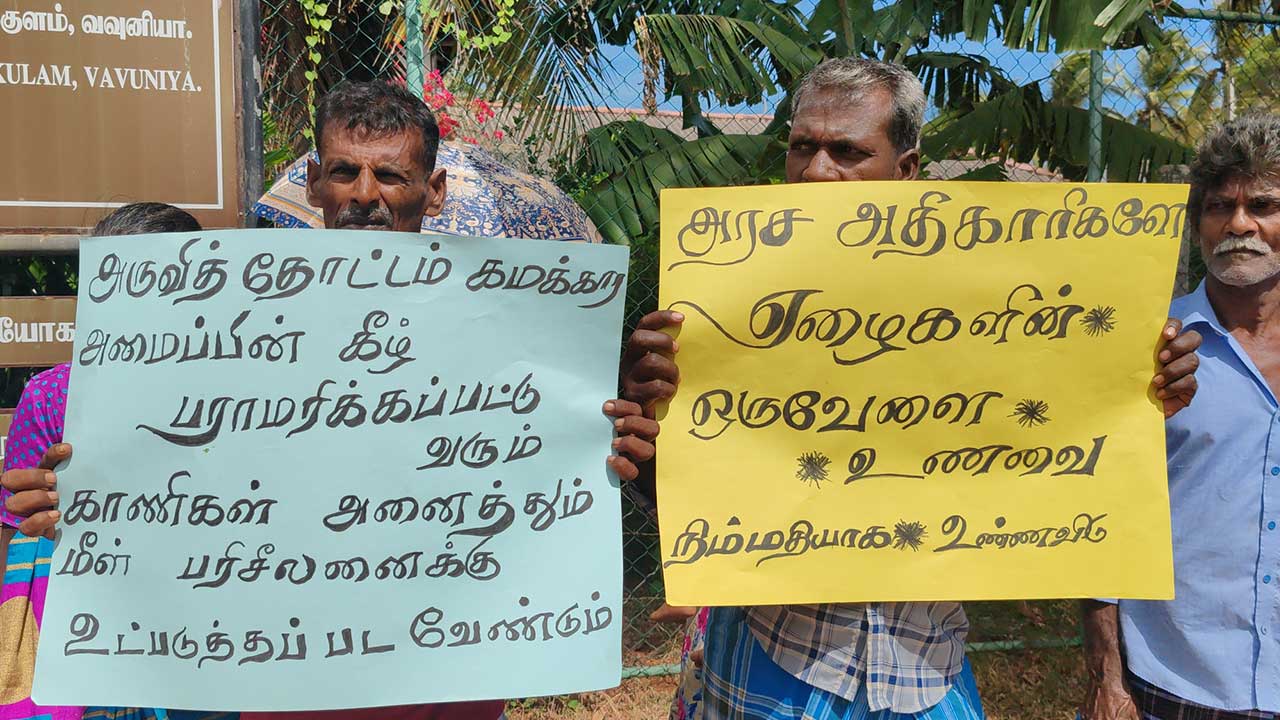 குளம், வவுனியா.
KULAM, VAVUNIYA.
யோக
அருவித் தோட்டம் கமக்கார
அமைப்பின் கீழ்
பராமரிக்கப்பட்டு
வரும்
காணிகள் அனைத்தும்
மீள் பரிசீலனைக்கு
உட்படுத்தப் பட வேண்டும்
அரச அதிகாரிகளே
ஏழைகளின்
ஒருவேளை
உணவை
நிம்மதியாக உண்ணவிடு